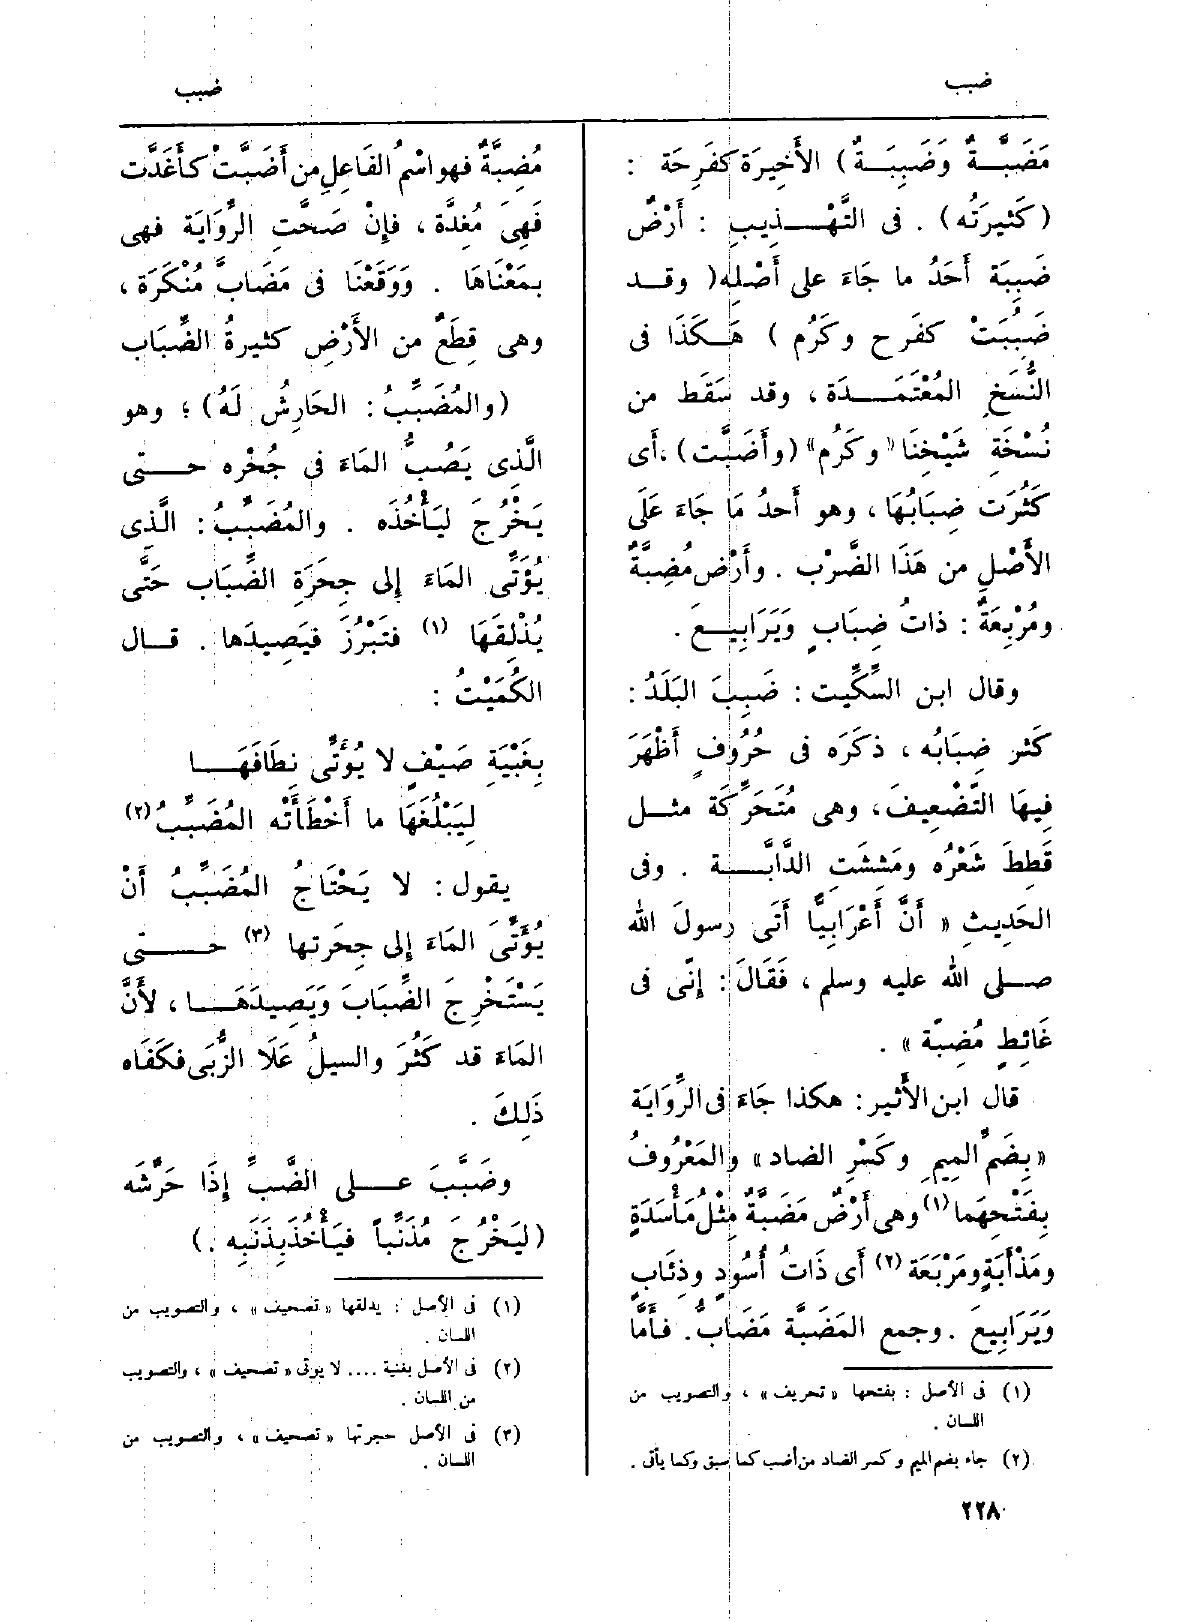 ضبب
ضبب
مَضَبَّةٌ وَضَبِبَةٌ) الأَخِيرَة كفَرِحَة :
(كَثيرَتُه) . فى التَّهْذِيبِ : أَرْضٌ
ضَبِبَة أَحَدُ ما جَاءَ على أَصْلِه (وقد
ضَبُبَتْ كفَرِح وكَرُم ) هَكَذَا فى
النُّسَخِ المُعْتَمَدَة ، وقد سَقَط من
نُسْخَةِ شَيْخِنَا «وكَرُم» (وأَضَبَّت)، أَى
كَثُرَت ضِبَابُهَا ، وهو أَحدُ مَا جَاءَ عَلَى
الأَصْلِ من هَذَا الضَّرْب . وأَرْض مُضِبَّةٌ
ومُرْبِعَةٌ : ذاتُ ضِبَابٍ وَيَرَابِيعَ .
وقال ابن السِّكِّيت : ضَبِبَ البَلَدُ :
كَثر ضِبَابُه ، ذكَرَه فى حُرُوفٍ أَظْهَرَ
فِيهَا التَّضْعِيفَ ، وهى مُتَحَرِّكَة مثل
قَطِطَ شَعْرُه ومَشِشَتِ الدَّابَّة . وفى
الحَدِيثِ « أَنَّ أَعْرَابِيًّا أَتَى رسولَ الله
صلى الله عليه وسلم ، فَقَالَ : إِنّى فى
غَائِطٍ مُضِبّة » .
قال ابن الأَثير : هكذا جَاءَ فى الرِّوَايَة
«بِضَمِّ المِيمِ وكَسْرِ الضاد» والمَعْرُوفُ
بِفَتْحِهِما (١) وهى أَرْضٌ مَضَبَّةٌ مِثْلُ مَأْسَدَةٍ
ومَذْأَبَةٍ ومَرْبَعَة (٢) أَى ذَاتُ أُسُودٍ وذِئَابٍ
وَيَرَابِيعَ . وجمع المَضَبَّة مَضَابُّ. فأَمَّا
(١) فى الأصل : بفتحها « تحريف » ، والتصويب من
اللسان .
(٢) جاء بضم الميم وكسر الضاد من أضب كما سبق وكما يأتى .
٢٢٨
مُضِبَّةٌ فهو اسْمُ الفَاعِلِ من أَضَبَّتْ كأَغَدَّت
فَهِىَ مُغِدَّة ، فإِنْ صَحَّتِ الرِّوَايَة فهى
بمَعْنَاهَا . وَوَقَعْنَا فى مَضَابَّ مُنْكَرَة ،
وهى قِطَعٌ من الأَرْضِ كثيرةُ الضِّبَاب
(والمُضَبِّبُ : الحَارِشُ لَهُ) ؛ وهو
الَّذِى يَصُبُّ المَاءَ فى جُحْره حتى
يَخْرُجَ ليَأْخُذَه . والمُضَبِّبُ : الَّذِى
يُؤَتِّى المَاءَ إِلى جِحَرَةِ الضِّبَاب حَتَّى
يُذْلِقَهَا (١) فتَبْرُزَ فيَصِيدَها . قال
الكُمَيْتُ :
بِغَبْيَةِ صَيْفٍ لا يُؤَتِّى نِطَافَهَا
لِيَبْلُغَهَا ما أَخْطَأَتْه المُضَبِّبُ (٢)
يقول : لا يَحْتَاجُ المُضَبِّبُ أَنْ
يُؤَتِّىَ المَاءَ إِلى جِحَرتها (٣) حتى
يَسْتَخْرِجَ الضِّبَابَ وَيَصِيدَهَا ، لأَنَّ
المَاءَ قد كَثُرَ والسيلُ عَلَا الزُّبَى فكَفَاه
ذَلِكَ .
وضَبَّبَ على الضَّبِّ إِذَا حَرَّشَه
(ليَخْرُجَ مُذَنِّباً فيَأْخُذَ بِذَنَبِه .)
(١) فى الأصل : يدلقها « تصحيف » ، والتصويب من
اللسان .
(٢) فى الأصل بغنية .... لا يوتى « تصحيف » ، والتصويب
من اللسان .
(٣) فى الأصل حجرتها « تصحيف » ، والتصويب من
اللسان .